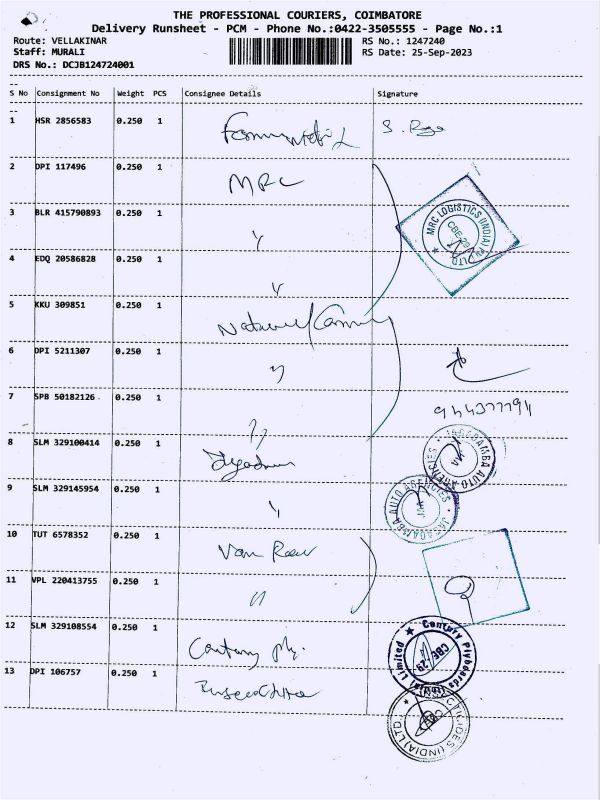 THE PROFESSIONAL COURIERS, COIMBATORE
Delivery Runsheet - PCM - Phone No.:0422-3505555 - Page No.:1
Route: VELLAKINAR RS No.: 1247240
Staff: MURALI RS Date: 25-Sep-2023
DRS No.: DCJB124724001
S No Consignment No Weight PCS Consignee Details Signature
1 HSR 2856583 0.250 1
2 DPI 117496 0.250 1 MRC
MRC LOGISTICS (INDIA) PV. LTD
CBE-29
3 BLR 415790893 0.250 1 "
4 EDQ 20586828 0.250 1 "
5 KKU 309851 0.250 1
6 DPI 5211307 0.250 1 "
7 SPB 50182126 0.250 1 "
8 SLM 329100414 0.250 1
JAGADAMBA AUTO AGENCIES
9 SLM 329145954 0.250 1 "
JAGADAMBA AUTO AGENCIES
10 TUT 6578352 0.250 1
11 VPL 220413755 0.250 1 "
12 SLM 329108554 0.250 1 Century Ply.
Century Plyboards Limited
CBE-29
13 DPI 106757 0.250 1
INSECTICIDES (INDIA) LTD.
CBE